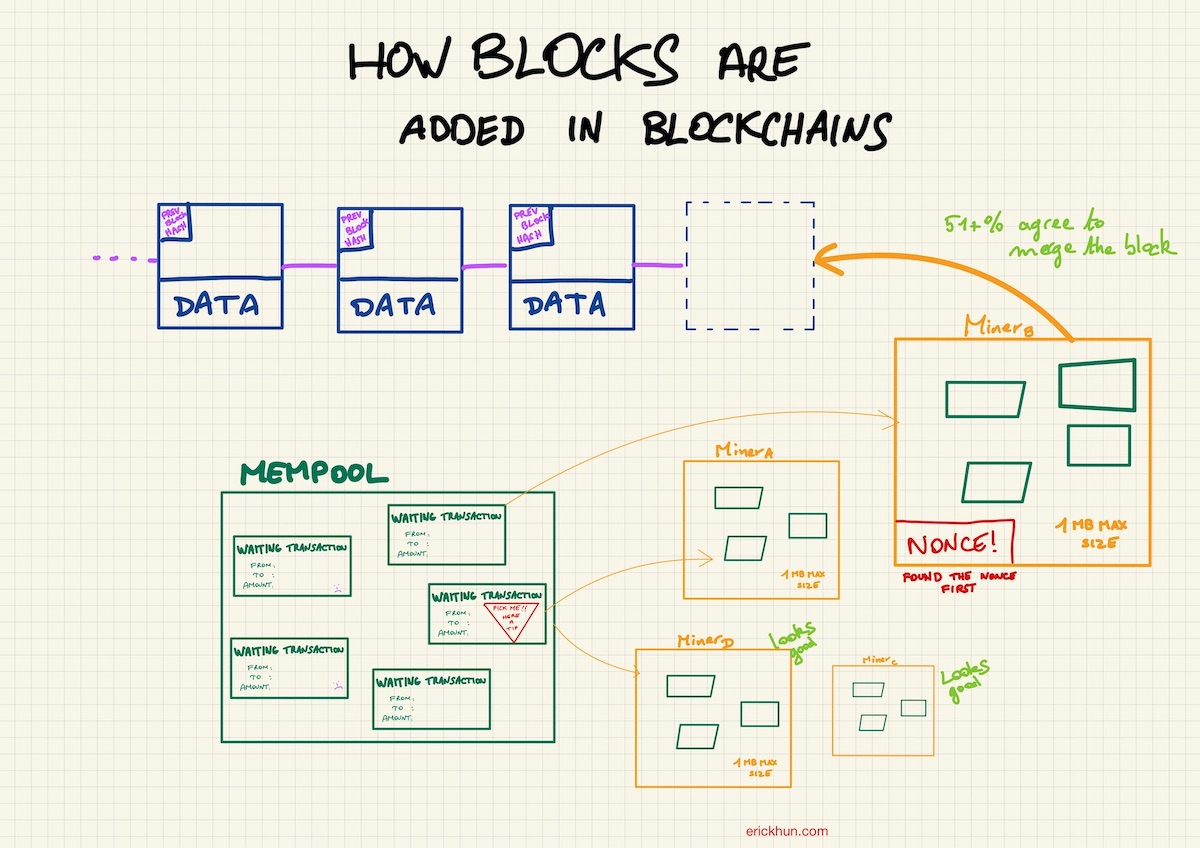 HOW BLOCKS ARE
ADDED IN BLOCKCHAINS
PREV
BLOCK
HASH
DATA
PREV
BLOCK
HASH
DATA
PREV
BLOCK
HASH
DATA
51+% agree to
merge the block
Miner B
NONCE!
1 MB MAX
SIZE
FOUND THE NONCE
FIRST
MEMPOOL
WAITING TRANSACTION
FROM:
TO :
AMOUNT.
WAITING TRANSACTION
FROM:
TO :
AMOUNT.
WAITING TRANSACTION
FROM:
TO :
AMOUNT.
PICK ME!!
HERE
A
TIP
WAITING TRANSACTION
FROM:
TO :
AMOUNT.
WAITING TRANSACTION
FROM:
TO :
AMOUNT.
Miner A
1 MB MAX
SIZE
Miner D
Looks
good
1 MB MAX
SIZE
Miner C
Looks
good
erickhun.com